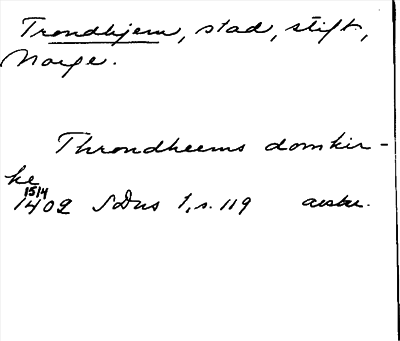 Trondhjem, stad, stift,
Norge.
Throndheems domkir-
ke
15/4
1402 SDns 1, s. 119 avskr.